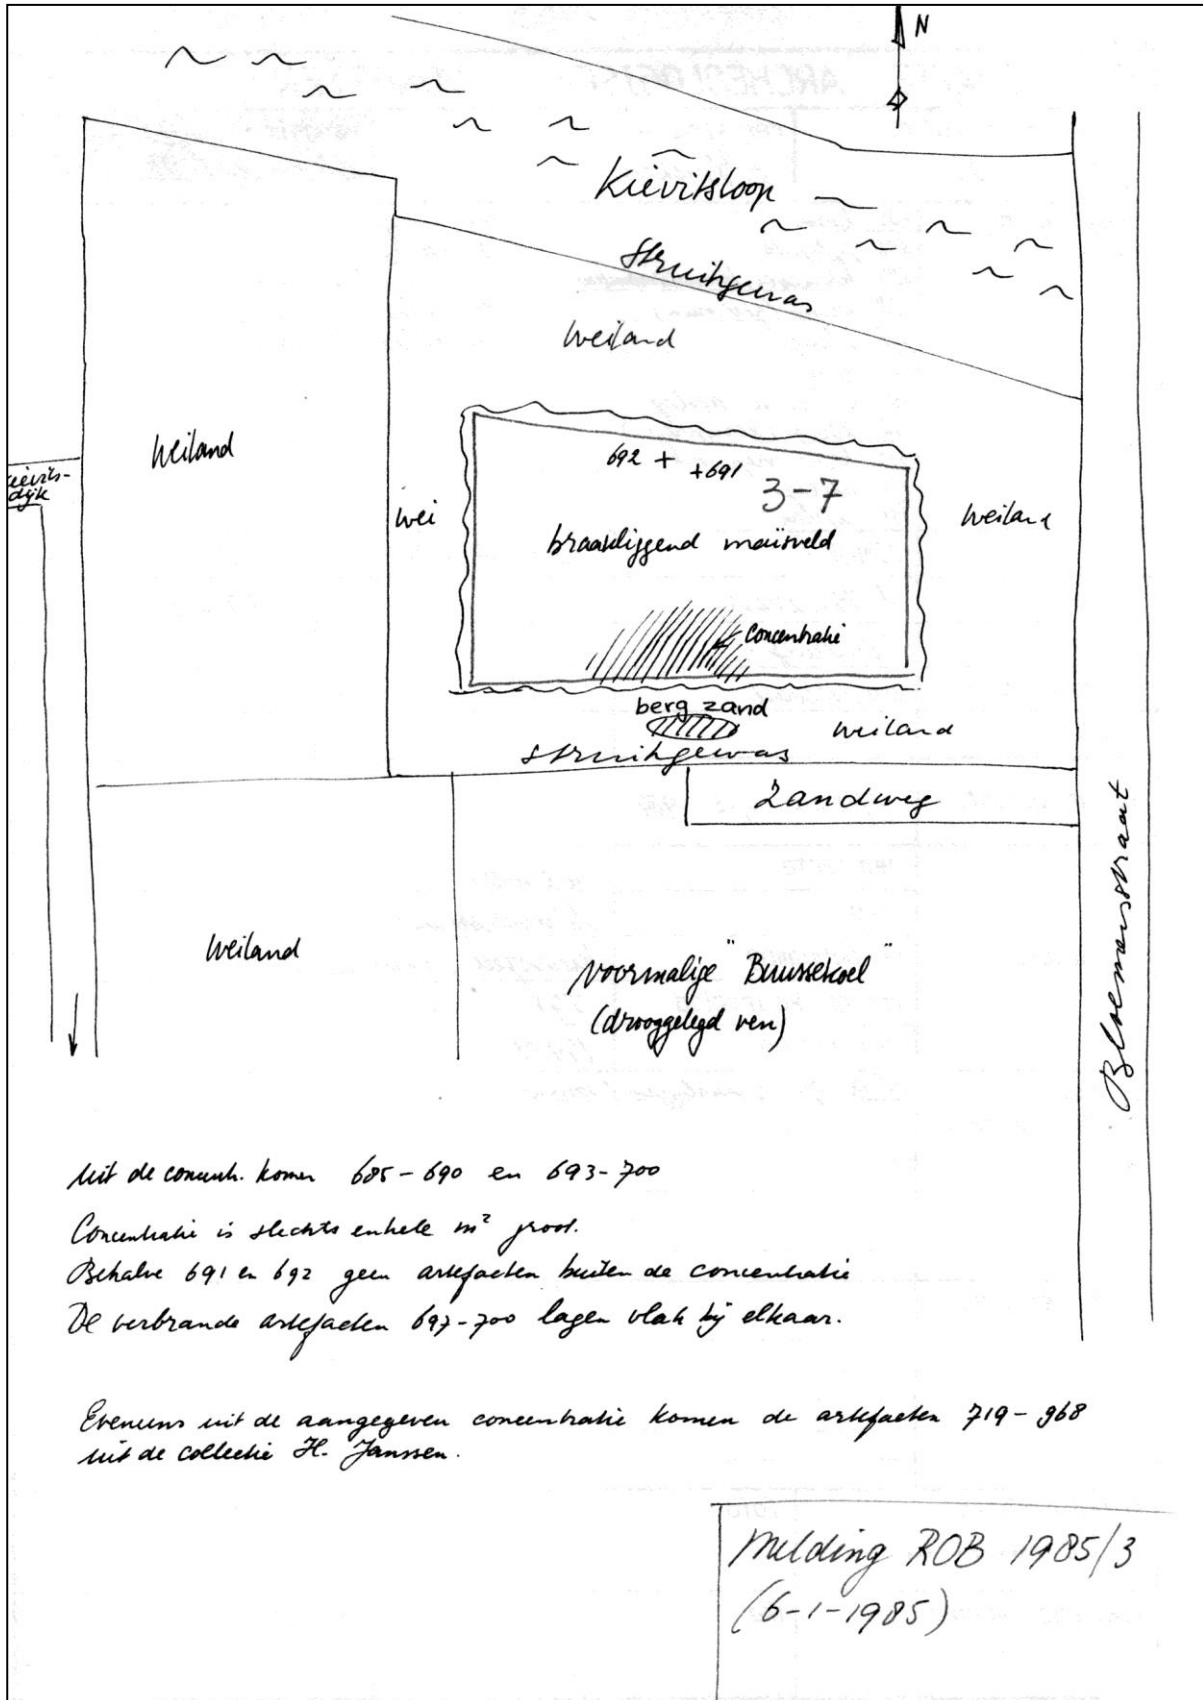 N
Kievitsloop
Struikgewas
Weiland
Weiland
692 + +691
3-7
Wei
Weiland
braakliggend maïsveld
Concentratie
berg zand
Weiland
Struikgewas
Zandweg
Kievits-
dijk
Bloemenstraat
Weiland
voormalige "Buussekoel"
(drooggelegd ven)
Uit de concentr. komen 685-690 en 693-700
Concentratie is slechts enkele m² groot.
Behalve 691 en 692 geen artefacten buiten de concentratie
De verbrande artefacten 697-700 lagen vlak bij elkaar.
Eveneens uit de aangegeven concentratie komen de artefacten 719-968
uit de collectie H. Janssen.
Melding ROB 1985/3
(6-1-1985)